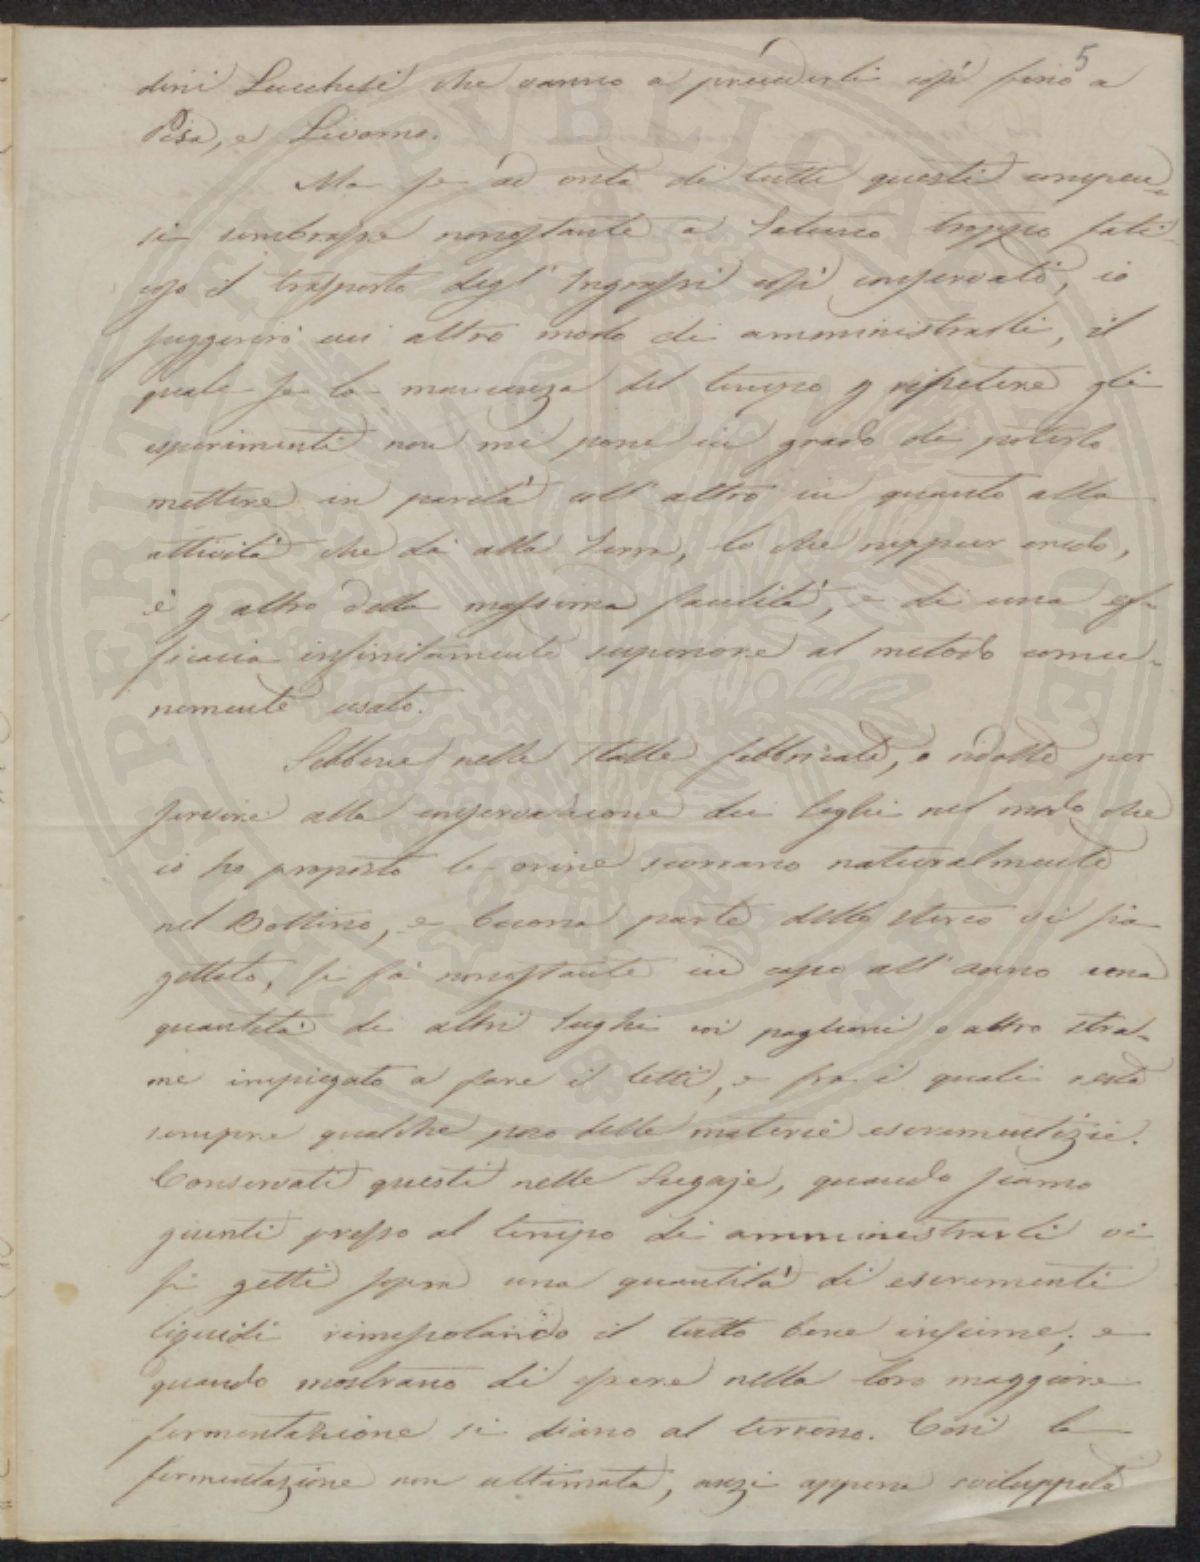 5
dini Lucchesi che vanno a prenderli così fino a
Pisa, e Livorno.
Ma se ad onta di tutti questi compen-
si sembrasse nonostante a taluno troppo fati-
coso il trasporto degl' Ingrassi così conservati, io
suggerirò un altro modo di amministrarli, il
quale se la mancanza del tempo p ripetere gli
esperimenti non mi pone in grado di poterlo
mettere in parità coll' altro in quanto alla
attività che dà alla Terra, lo che neppur credo,
è p altro della massima facilità, e di una ef-
ficacia infinitamente superiore al metodo comu-
nemente usato.
Sebbene nelle Stalle fabbricate, o ridotte per
servire alla conservazione dei sughi nel modo che
io ho proposto le orine scorrano naturalmente
nel Bottino, e buona parte dello sterco vi sia
gettato, si fà nonostante in capo all' anno una
quantità di altri sughi coi paglioni o altro stra-
me impiegato a fare il letti, e fra i quali resta
sempre qualche poco delle materie escrementizie.
Conservati questi nelle Sugaje, quando siamo
giunti presso al tempo di amministrarli vi
si getti sopra una quantità di escrementi
liquidi rimescolando il tutto bene insieme, e
quando mostrano di essere nella loro maggiore
fermentazione si diano al terreno. Così la
fermentazione non ultimata, anzi appena sviluppata